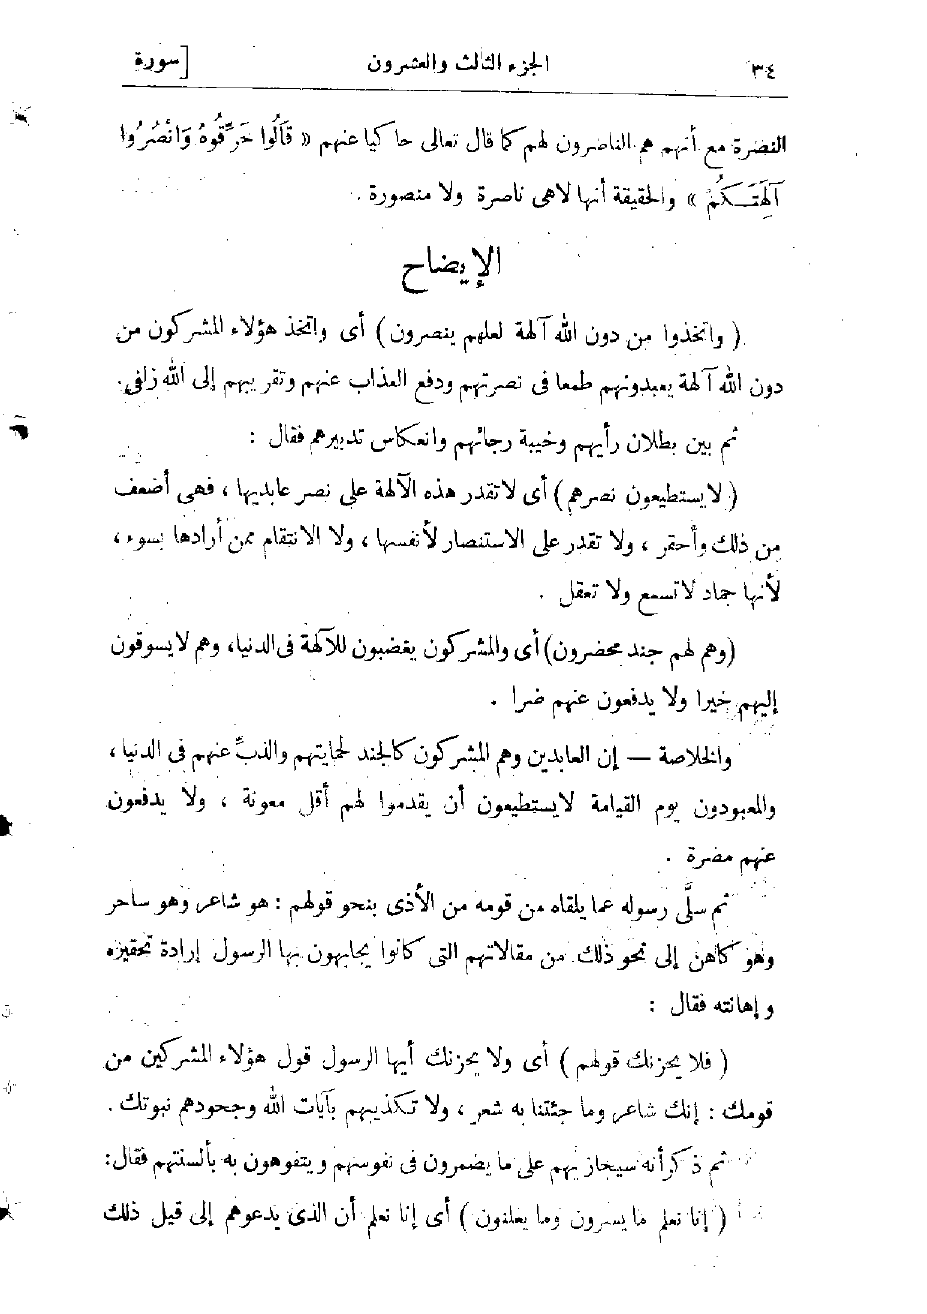 ٣٤ الجزء الثالث والعشرون [سورة
النصرة مع أنهم هم الناصرون لهم كما قال تعالى حاكيا عنهم « قَالُوا حَرِّقُوهُ وَانْصُرُوا
آلِهَتَكُمْ » والحقيقة أنها لاهى ناصرة ولا منصورة .
الإيضاح
( واتخذوا من دون الله آلهة لعلهم ينصرون ) أى واتخذ هؤلاء المشركون من
دون الله آلهة يعبدونهم طمعا فى نصرتهم ودفع العذاب عنهم وتقريبهم إلى الله زلفى.
ثم بين بطلان رأيهم وخيبة رجائهم وانعكاس تدبيرهم فقال :
( لا يستطيعون نصرهم ) أى لا تقدر هذه الآلهة على نصر عابديها ، فهى أضعف
من ذلك وأحقر ، ولا تقدر على الاستنصار لأنفسها ، ولا الانتقام ممن أرادها بسوء ،
لأنها جماد لا تسمع ولا تعقل .
(وهم لهم جند محضرون) أى والمشركون يغضبون للآلهة فى الدنيا، وهم لا يسوقون
إليهم خيرا ولا يدفعون عنهم ضرا .
والخلاصة — إن العابدين وهم المشركون كالجند لحمايتهم والذبِّ عنهم فى الدنيا ،
والمعبودون يوم القيامة لا يستطيعون أن يقدموا لهم أقل معونة ، ولا يدفعون
عنهم مضرة .
ثم سلَّى رسوله عما يلقاه من قومه من الأذى بنحو قولهم : هو شاعر وهو ساحر
وهو كاهن إلى نحو ذلك من مقالاتهم التى كانوا يجابهون بها الرسول إرادة تحقيره
وإهانته فقال :
( فلا يحزنك قولهم ) أى ولا يحزنك أيها الرسول قول هؤلاء المشركين من
قومك : إنك شاعر وما جئتنا به شعر ، ولا تكذيبهم بآيات الله وجحودهم نبوتك .
ثم ذكر أنه سيجازيهم على ما يضمرون فى نفوسهم ويتفوهون به بألسنتهم فقال:
( إنا نعلم ما يسرون وما يعلنون ) أى إنا نعلم أن الذى يدعوهم إلى قيل ذلك